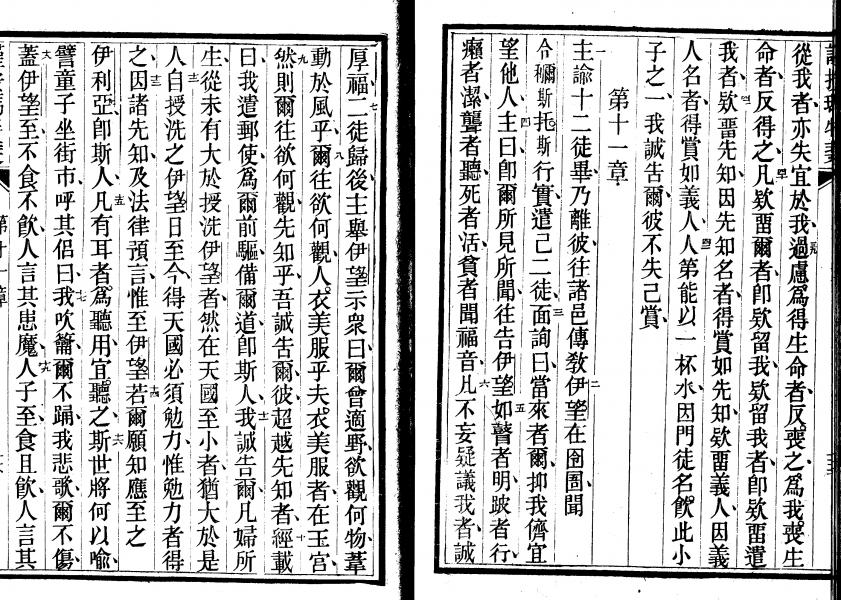 從我者亦失宜於我過慮爲得生命者反喪之爲我喪生
命者反得之凡欵畱爾者卽欵留我欵留我者卽欵畱遣
我者欵畱先知因先知名者得賞如先知欵畱義人因義
人名者得賞如義人人第能以一杯水因門徒名飲此小
子之一我誠告爾彼不失己賞
第十一章
一主諭十二徒畢乃離彼往諸邑傳敎二伊望在囹圄聞
合穪斯托斯行實遣己二徒三面詢曰當來者爾抑我儕宜
望他人四主曰卽爾所見所聞往告伊望五如瞽者明跛者行
癩者潔聾者聽死者活貧者聞福音六凡不妄疑議我者誠
厚福七二徒歸後主舉伊望示衆曰爾曾適野欲觀何物葦
動於風乎八爾往欲何觀人衣美服乎夫衣美服者在王宫
九然則爾往欲何觀先知乎吾誠告爾彼超越先知者十經載
曰我遣郵使爲爾前驅備爾道卽斯人十一我誠告爾凡婦所
生從未有大於授洗伊望者然在天國至小者猶大於是
人十二自授洗之伊望日至今得天國必須勉力惟勉力者得
之十三因諸先知及法律預言惟至伊望十四若爾願知應至之
伊利亞卽斯人十五凡有耳者爲聽用宜聽之十六斯世將何以喩
譬童子坐街市呼其侶曰十七我吹籥爾不踊我悲歌爾不傷
十八蓋伊望至不食不飲人言其患魔十九人子至食且飲人言其